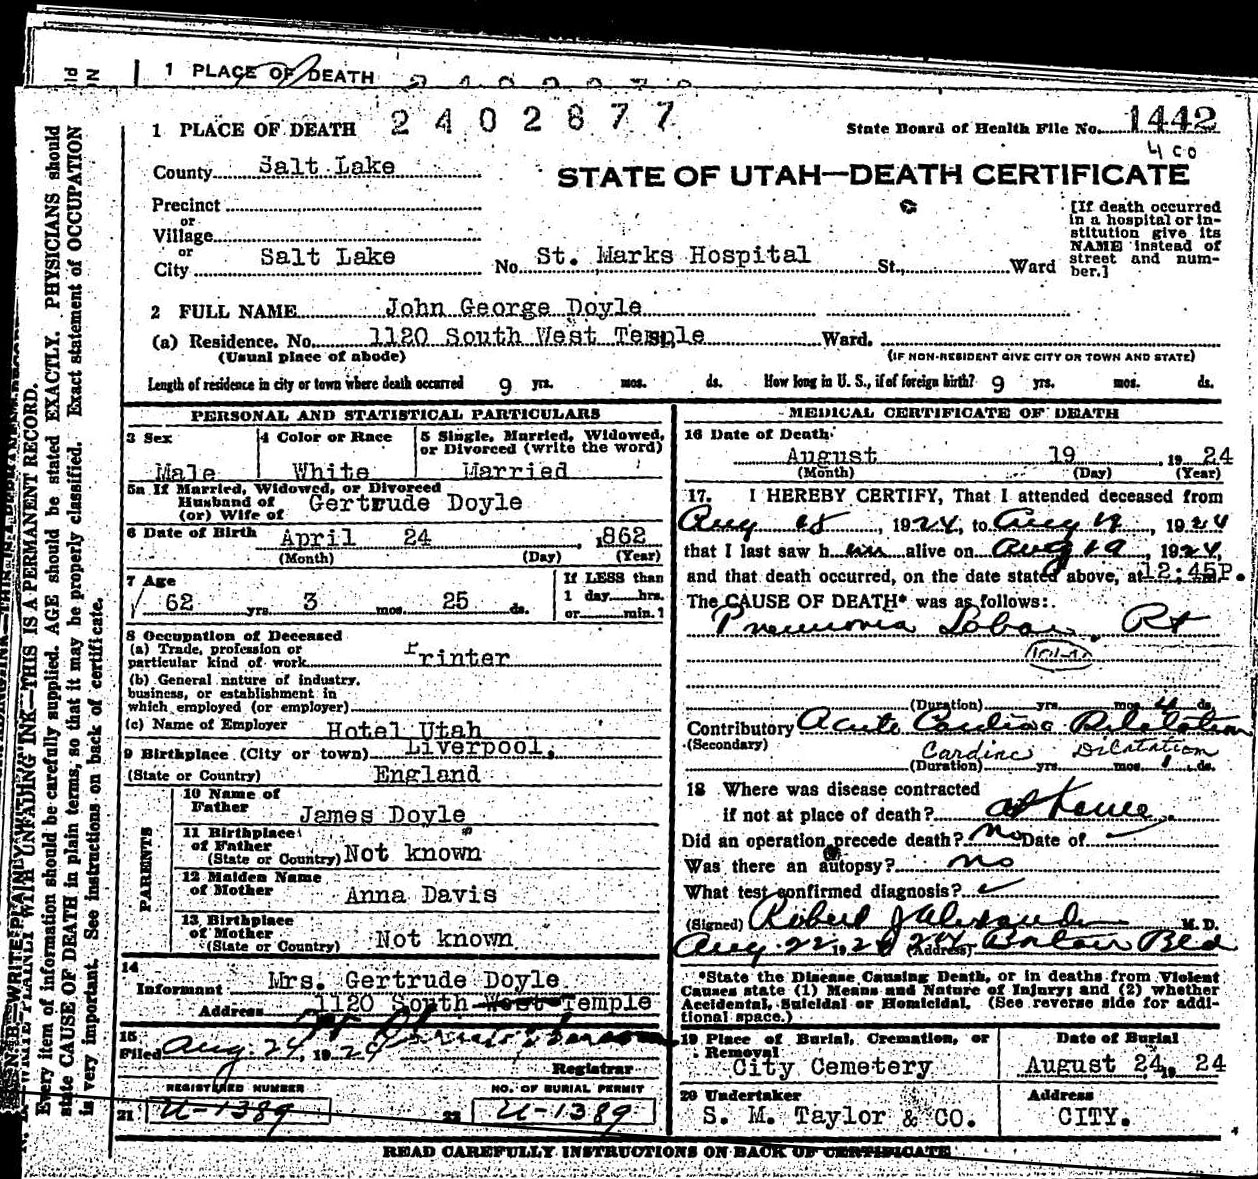 1 PLACE OF DEATH
1 PLACE OF DEATH 2402677
State Board of Health File No. 1442
400
County Salt Lake
STATE OF UTAH—DEATH CERTIFICATE
Precinct
or
Village
or
City Salt Lake No. St. Marks Hospital St., Ward
[If death occurred
in a hospital or in-
stitution give its
NAME instead of
street and num-
ber.]
2 FULL NAME John George Doyle
(a) Residence. No. 1120 South West Temple St. Ward.
(Usual place of abode) (IF NON-RESIDENT GIVE CITY OR TOWN AND STATE)
Length of residence in city or town where death occurred 9 yrs. mos. ds. How long in U. S., if of foreign birth? 9 yrs. mos. ds.
PERSONAL AND STATISTICAL PARTICULARS
3 Sex
Male
4 Color or Race
White
5 Single, Married, Widowed,
or Divorced (write the word)
Married
5a If Married, Widowed, or Divorced
Husband of
(or) Wife of Gertrude Doyle
6 Date of Birth April 24, 1862
(Month) (Day) (Year)
7 Age
62 yrs. 3 mos. 25 ds.
If LESS than
1 day hrs.
or min.?
8 Occupation of Deceased
(a) Trade, profession or
particular kind of work Printer
(b) General nature of industry,
business, or establishment in
which employed (or employer)
(c) Name of Employer Hotel Utah
9 Birthplace (City or town) Liverpool,
(State or Country) England
PARENTS
10 Name of
Father James Doyle
11 Birthplace
of Father
(State or Country) Not known
12 Maiden Name
of Mother Anna Davis
13 Birthplace
of Mother
(State or Country) Not known
14
Informant Mrs. Gertrude Doyle
Address 1120 South West Temple
15
Filed Aug. 24, 1924
Registrar
REGISTERED NUMBER
21 U-1389
NO. OF BURIAL PERMIT
22 U-1389
MEDICAL CERTIFICATE OF DEATH
16 Date of Death
August 19, 1924
(Month) (Day) (Year)
17. I HEREBY CERTIFY, That I attended deceased from
Aug 18, 1924, to Aug 19, 1924
that I last saw h im alive on Aug 19, 1924,
and that death occurred, on the date stated above, at 12:45P.m.
The CAUSE OF DEATH* was as follows:
Pneumonia Lobar. Rt
(Duration) yrs. mos. 4 ds.
Contributory Acute Cardiac Dilatation
(Secondary) Cardiac Dilatation
(Duration) yrs. mos. 1 ds.
18 Where was disease contracted
if not at place of death? at home
Did an operation precede death? no Date of
Was there an autopsy? no
What test confirmed diagnosis?
(Signed) Robert J Alexander M.D.
Aug. 22 1924 (Address) Boston Bld
*State the Disease Causing Death, or in deaths from Violent
Causes state (1) Means and Nature of Injury; and (2) whether
Accidental, Suicidal or Homicidal. (See reverse side for addi-
tional space.)
19 Place of Burial, Cremation, or
Removal
City Cemetery
Date of Burial
August 24, 1924
20 Undertaker
S. M. Taylor & CO.
Address
CITY.
READ CAREFULLY INSTRUCTIONS ON BACK OF CERTIFICATE
Every item of information should be carefully supplied. AGE should be stated EXACTLY. PHYSICIANS should
state CAUSE OF DEATH in plain terms, so that it may be properly classified. Exact statement of OCCUPATION
is very important. See instructions on back of certificate.
N. B.—WRITE PLAINLY WITH UNFADING INK—THIS IS A PERMANENT RECORD.